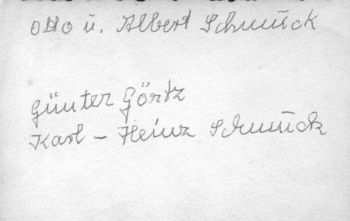 Otto u. Albert Schmuck
Günter Görtz
Karl - Heinz Schmuck